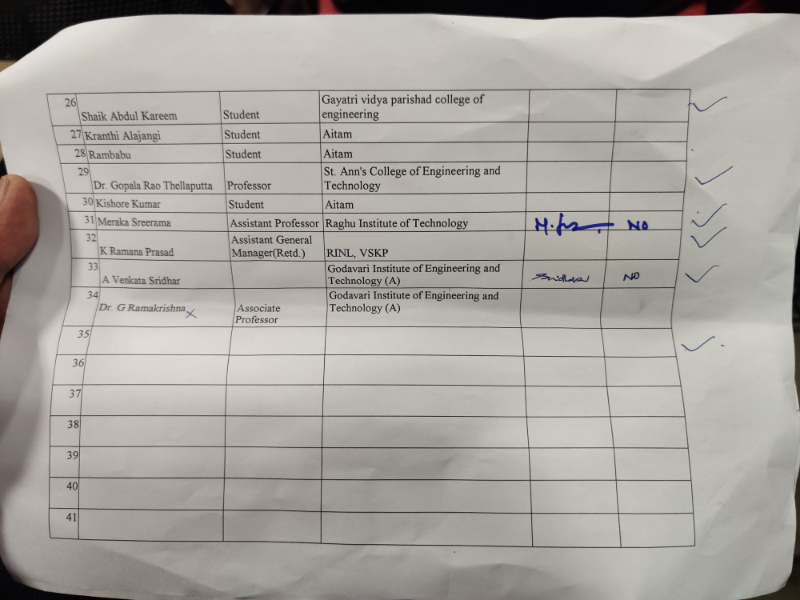 26 Shaik Abdul Kareem Student Gayatri vidya parishad college of
engineering
27 Kranthi Alajangi Student Aitam
28 Rambabu Student Aitam
29 Dr. Gopala Rao Thellaputta Professor St. Ann's College of Engineering and
Technology
30 Kishore Kumar Student Aitam
31 Meraka Sreerama Assistant Professor Raghu Institute of Technology NO
32 K Ramana Prasad Assistant General
Manager(Retd.) RINL, VSKP
33 A Venkata Sridhar Godavari Institute of Engineering and
Technology (A) NO
34 Dr. G Ramakrishna Associate
Professor Godavari Institute of Engineering and
Technology (A)
35
36
37
38
39
40
41